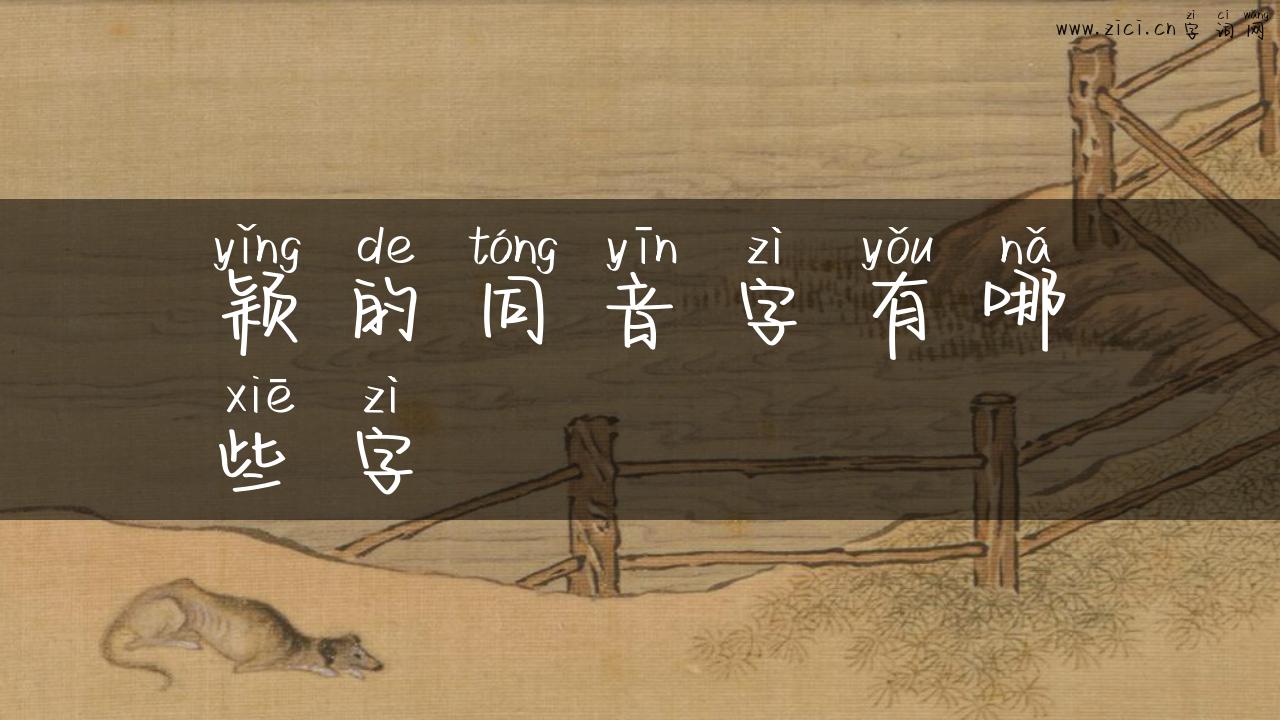 zì cí wǎng
www.zici.cn 字 词 网
yǐng de tóng yīn zì yǒu nǎ
颖 的 同 音 字 有 哪
xiē zì
些 字